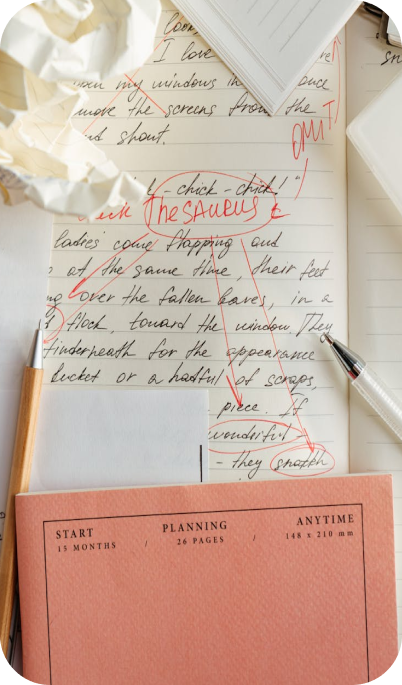 look
I love
my windows in once
move the screens from the
and shout.
OMIT
-chick-chick!"
THESAURUS
ladies come flapping and
at the same time, their feet
over the fallen leaves, in a
flock, toward the window. They
underneath for the appearance
bucket or a hadful of scraps,
piece. If
wonderful -
- they snatch
START PLANNING ANYTIME
15 MONTHS / 26 PAGES / 148 x 210 mm